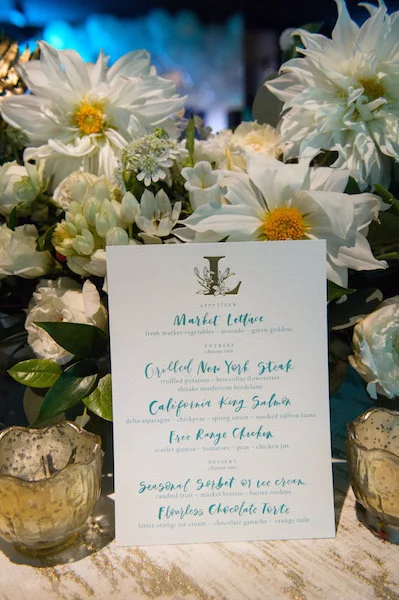 L
APPETIZER
Market Lettuce
fresh market vegetables - avocado - green goddess
ENTREES
choose one
Grilled New York Steak
truffled potatoes - broccolini flowerettes
shitake mushroom bordelaise
California King Salmon
delta asparagus - chickpeas - spring onion - smoked saffron fumé
Free Range Chicken
scarlet quinoa - tomatoes - peas - chicken jus
DESSERT
choose one
Seasonal Sorbet or Ice Cream
candied fruit - market berries - butter cookies
Flourless Chocolate Torte
bitter orange ice cream - chocolate ganache - orange tuile